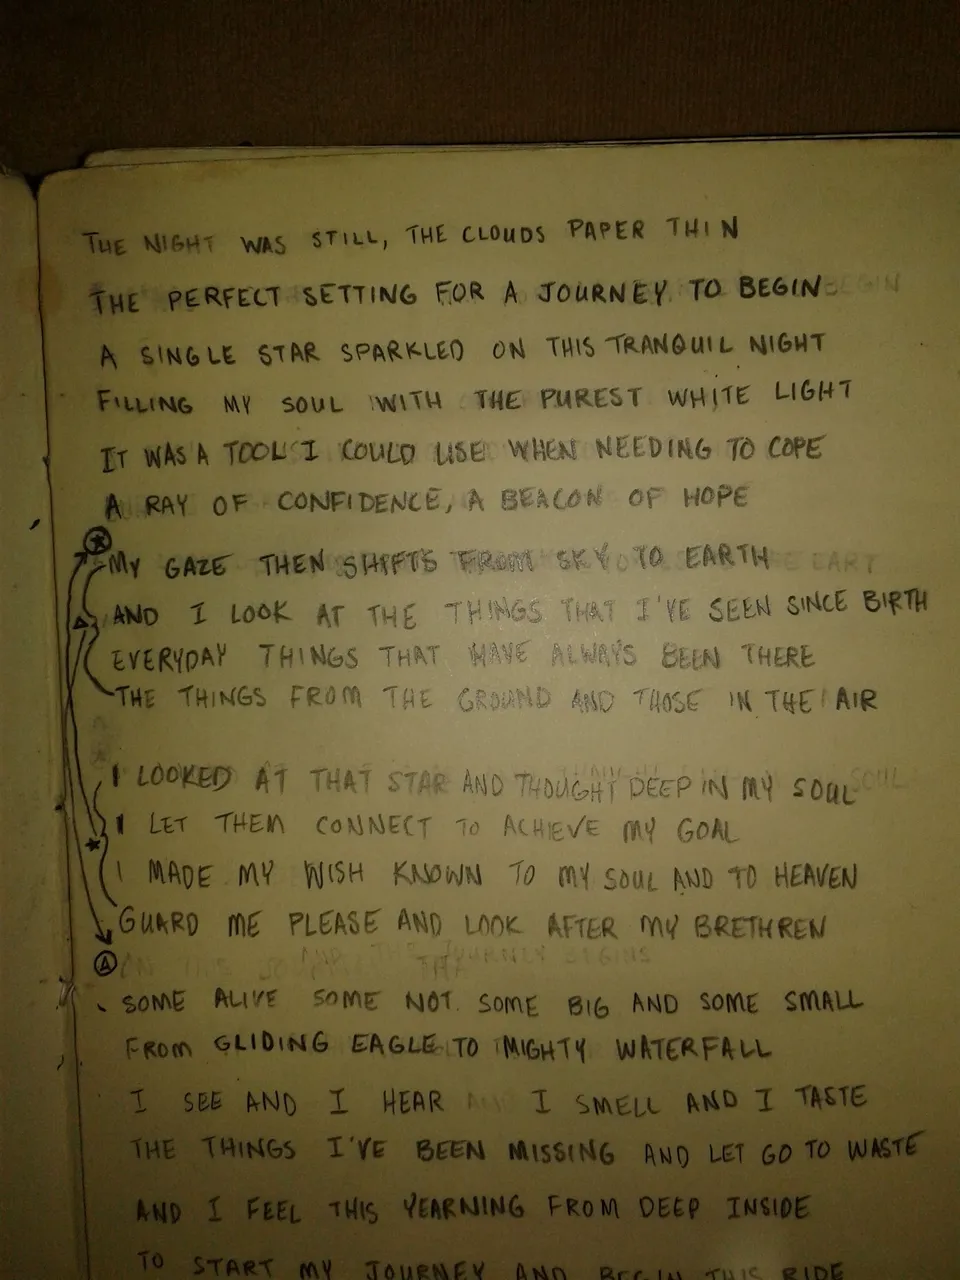 THE NIGHT WAS STILL, THE CLOUDS PAPER THIN
THE PERFECT SETTING FOR A JOURNEY TO BEGIN
A SINGLE STAR SPARKLED ON THIS TRANQUIL NIGHT
FILLING MY SOUL WITH THE PUREST WHITE LIGHT
IT WAS A TOOL I COULD USE WHEN NEEDING TO COPE
A RAY OF CONFIDENCE, A BEACON OF HOPE
MY GAZE THEN SHIFTS FROM SKY TO EARTH
AND I LOOK AT THE THINGS THAT I'VE SEEN SINCE BIRTH
EVERYDAY THINGS THAT HAVE ALWAYS BEEN THERE
THE THINGS FROM THE GROUND AND THOSE IN THE AIR
I LOOKED AT THAT STAR AND THOUGHT DEEP IN MY SOUL
I LET THEM CONNECT TO ACHIEVE MY GOAL
I MADE MY WISH KNOWN TO MY SOUL AND TO HEAVEN
GUARD ME PLEASE AND LOOK AFTER MY BRETHREN
A
SOME ALIVE SOME NOT SOME BIG AND SOME SMALL
FROM GLIDING EAGLE TO MIGHTY WATERFALL
I SEE AND I HEAR I SMELL AND I TASTE
THE THINGS I'VE BEEN MISSING AND LET GO TO WASTE
AND I FEEL THIS YEARNING FROM DEEP INSIDE
TO START MY JOURNEY AND BEGIN THIS RIDE